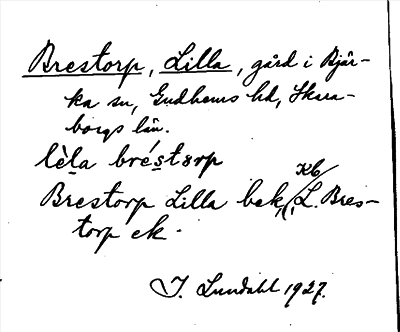 Brestorp, Lilla, gård i Bjär-
ka sn, Gudhems hd, Skara-
borgs län.
lèla bréstɵrp
Kb
Brestorp Lilla bek, L. Bres-
torp ek.
I. Lundahl 1927.